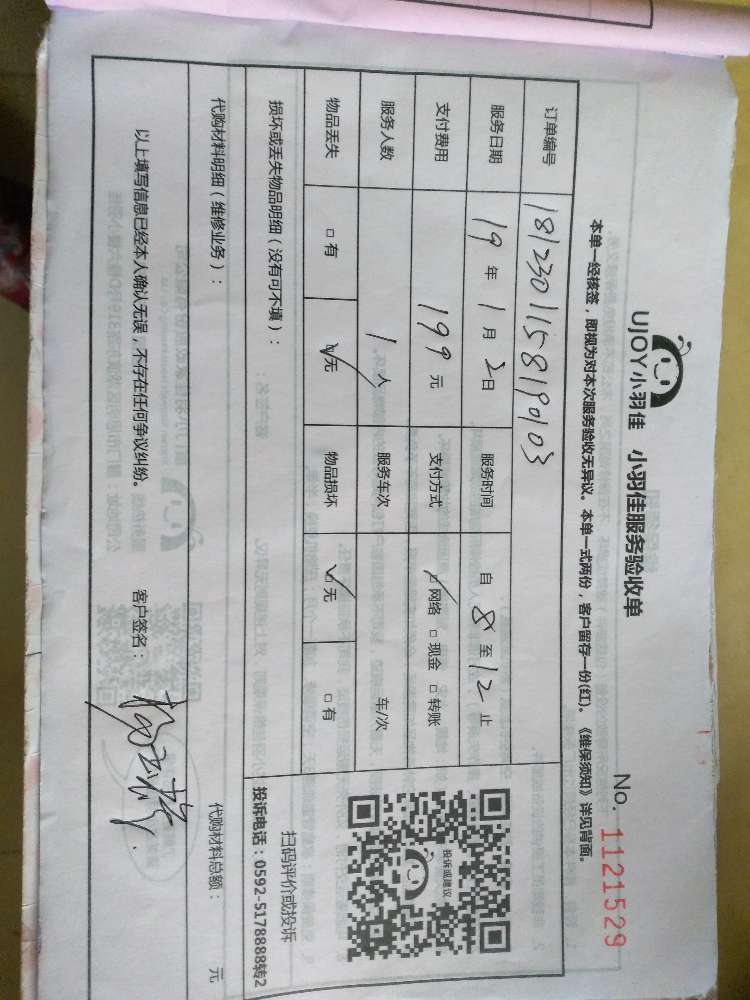 UJOY小羽佳 小羽佳服务验收单
No. 1121529
本单一经核签，即视为对本次服务验收无异议。本单一式两份，客户留存一份(红)。《维保须知》详见背面。
订单编号 1812301158190103
服务日期 19年1月2日 服务时间 自8至12止
支付费用 199元 支付方式 ☑网络 □现金 □转账
服务人数 1人 服务车次 车/次
物品丢失 □有 ☑无 物品损坏 ☑无 □有
投诉或建议
扫码评价或投诉
投诉电话：0592-5178888转2
损坏或丢失物品明细（没有可不填）：
代购材料明细（维修业务）：
代购材料总额： 元
以上填写信息已经本人确认无误，不存在任何争议纠纷。 客户签名：